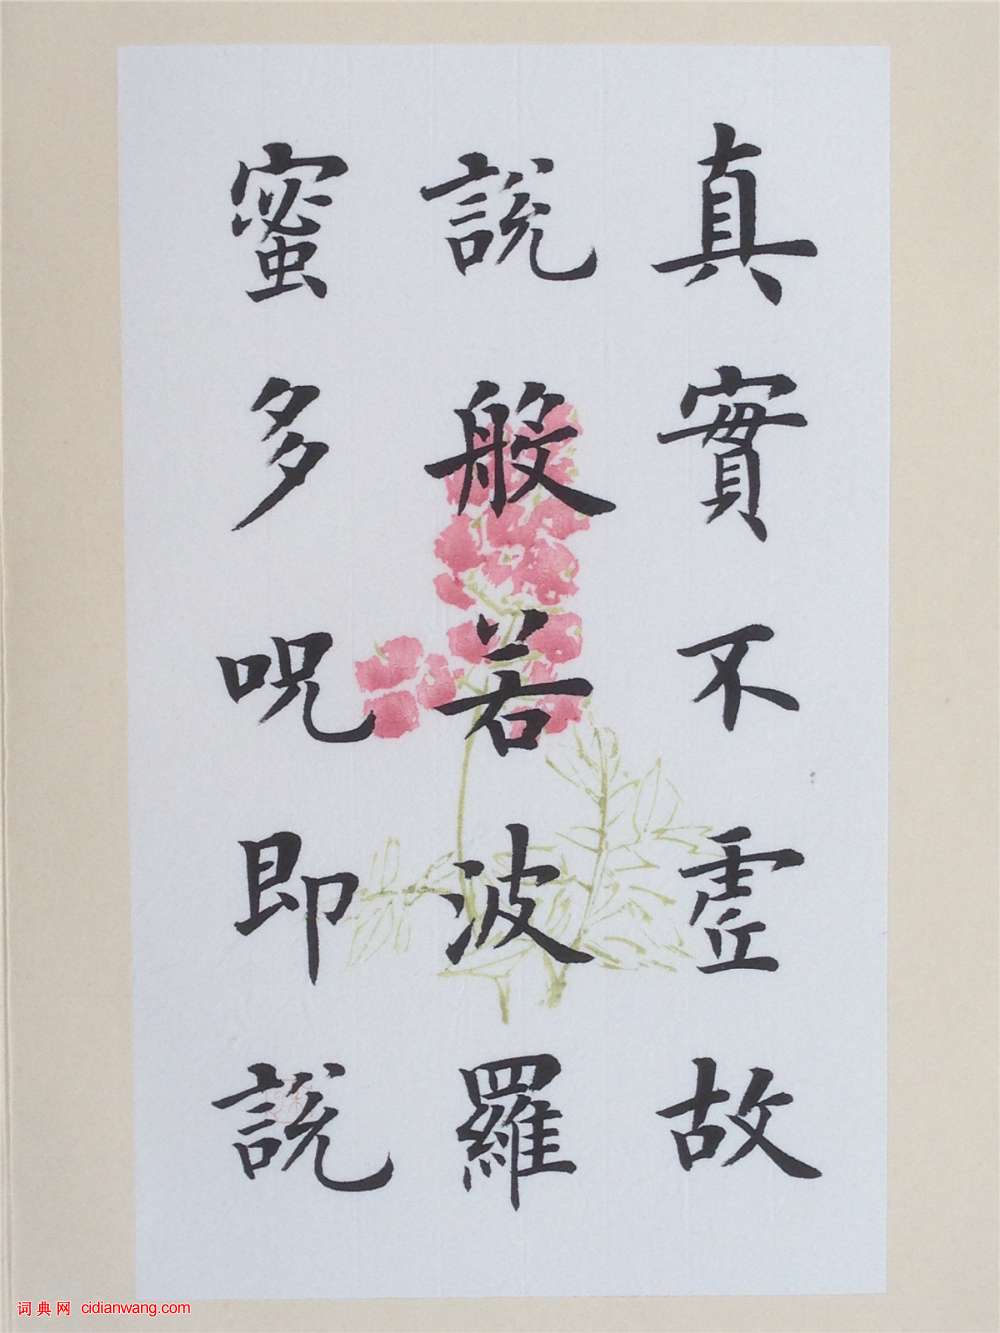 真實不虛故
說般若波羅
蜜多呪即說
词典网 cidianwang.com